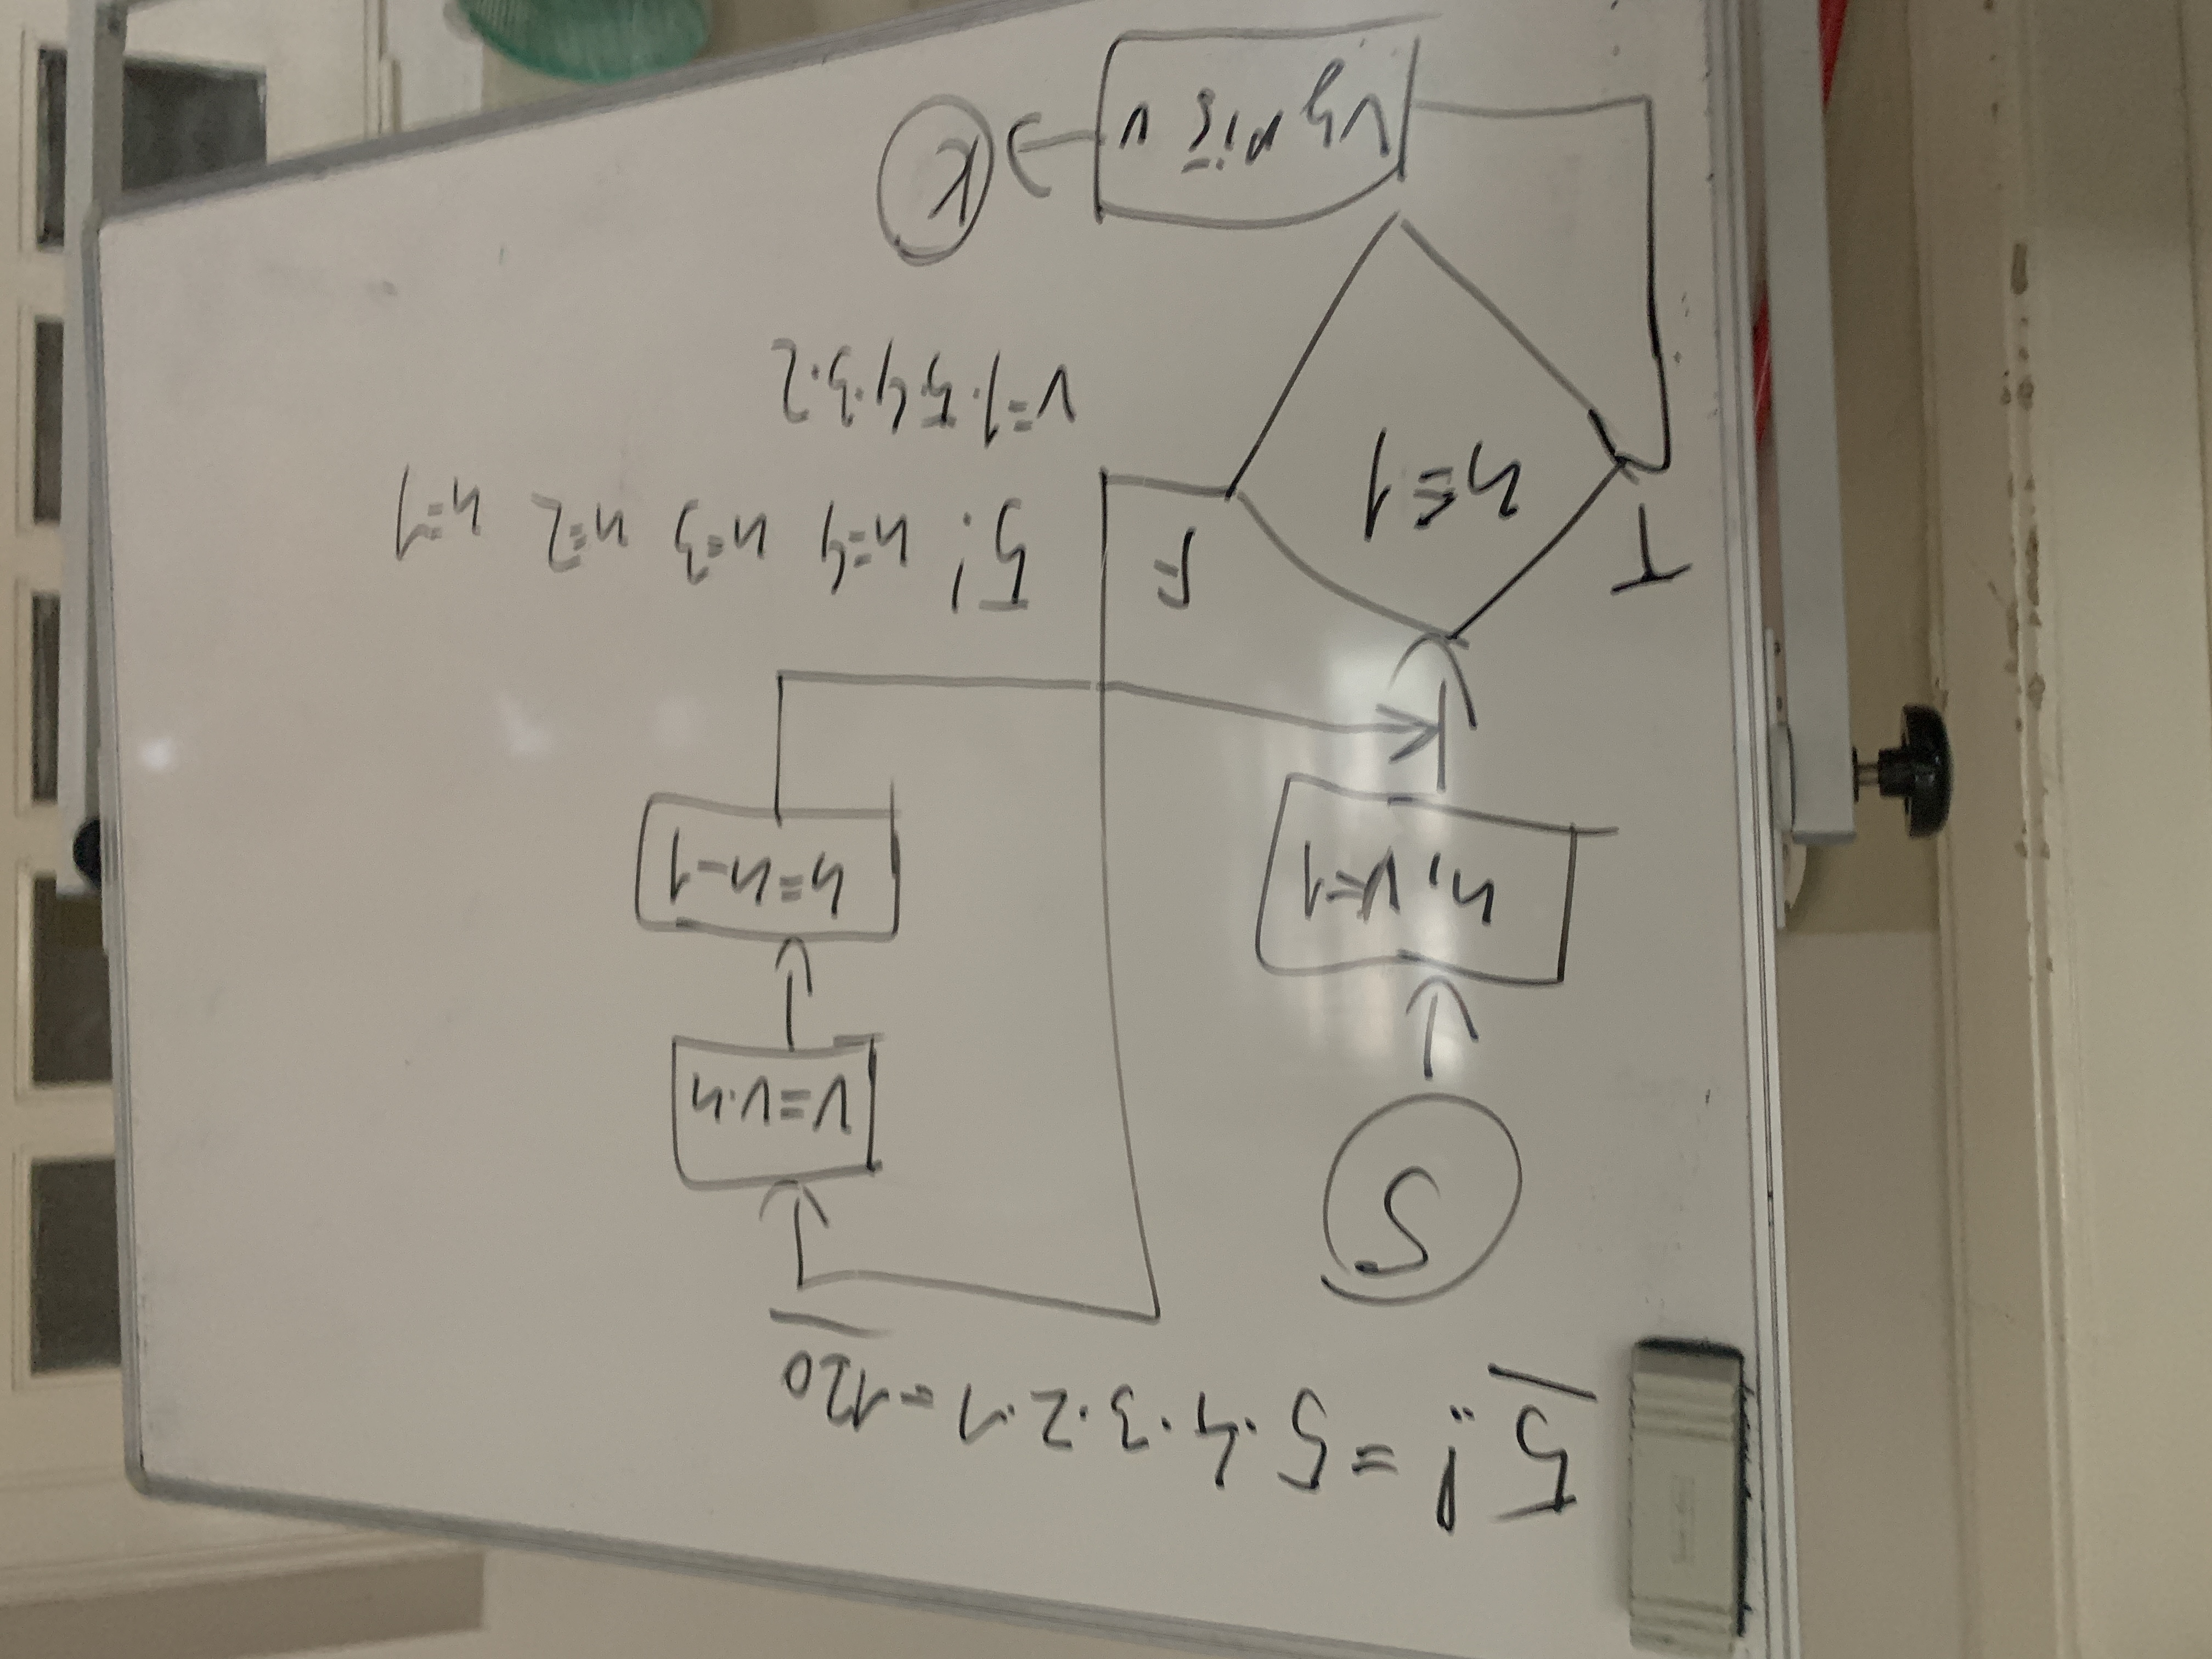 5! = 5.4.3.2.1 = 120
S
n, v=1
n≤1
T
F
v=v.n
n=n-1
5! n=4 n=3 n=2 n=1
v=1.5.4.3.2
vypiš v
K